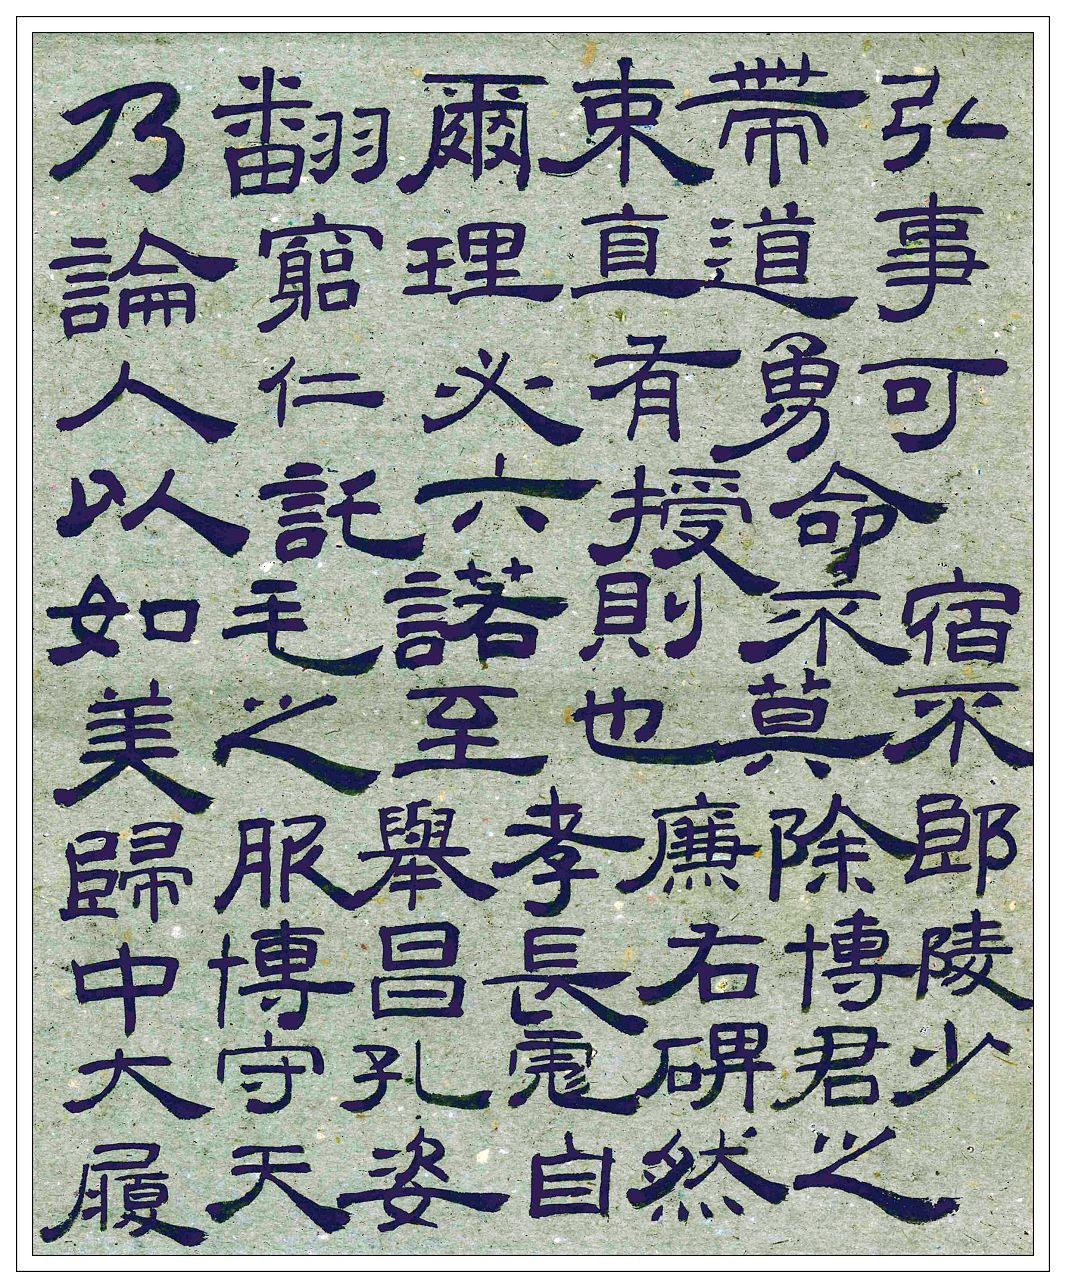 乃翻爾束帶弘
論窮理直道事
人仁必有勇可
以託六授命
如毛諾則不宿
美之至也莫不
歸服舉孝廉除郎
中博昌長右博陵
大守孔彪碑君少
履天姿自然之